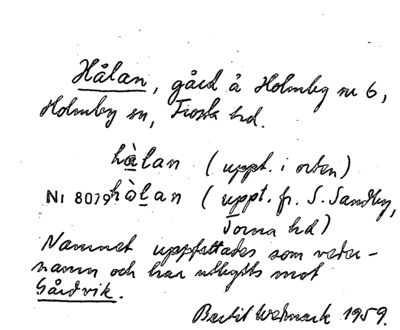 Hålan, gård å Holmby nr 6,
Holmby sn, Frosta hd.
hàlan (uppt. i orten)
Ni 8079 hòlan (uppt. fr. S. Sandby,
Torna hd)
Namnet uppfattades som veder-
namn och har utbytts mot
Gårdvik.
Bertil Ejder 1959.